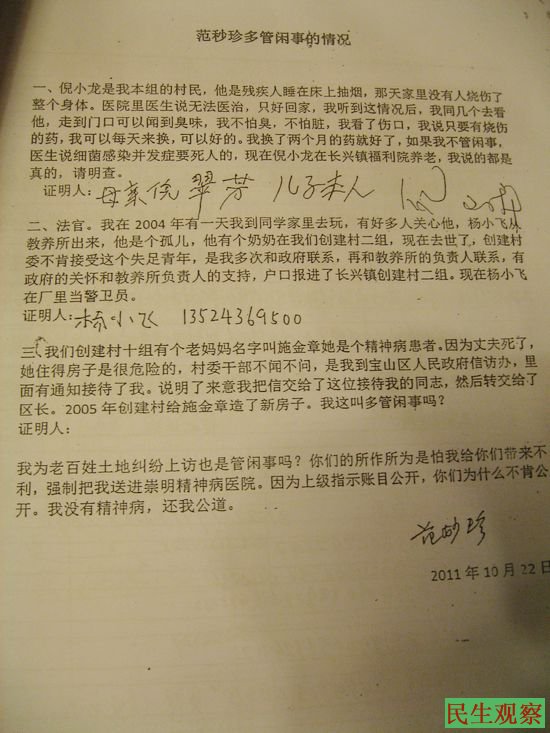 范秒珍多管闲事的情况
一、倪小龙是我本组的村民，他是残疾人睡在床上抽烟，那天家里没有人烧伤了
整个身体。医院里医生说无法医治，只好回家，我听到这情况后，我同几个去看
他，走到门口可以闻到臭味，我不怕臭，不怕脏，我看了伤口，我说只要有烧伤
的药，我可以每天来换，可以好的。我换了两个月的药就好了，如果我不管闲事，
医生说细菌感染并发症要死人的，现在倪小龙在长兴镇福利院养老，我说的都是
真的，请明查。
证明人：母亲倪翠芳 儿子本人
二、法官。我在 2004 年有一天我到同学家里去玩，有好多人关心他，杨小飞从
教养所出来，他是个孤儿，他有个奶奶在我们创建村二组，现在去世了，创建村
委不肯接受这个失足青年，是我多次和政府联系，再和教养所的负责人联系，有
政府的关怀和教养所负责人的支持，户口报进了长兴镇创建村二组。现在杨小飞
在厂里当警卫员。
证明人：杨小飞 13524369500
三、我们创建村十组有个老妈妈名字叫施金章她是个精神病患者。因为丈夫死了，
她住得房子是很危险的，村委干部不闻不问，是我到宝山区人民政府信访办，里
面有通知接待了我。说明了来意我把信交给了这位接待我的同志，然后转交给了
区长。2005 年创建村给施金章造了新房子。我这叫多管闲事吗？
证明人：
我为老百姓土地纠纷上访也是管闲事吗？你们的所作所为是怕我给你们带来不
利，强制把我送进崇明精神病医院。因为上级指示账目公开，你们为什么不肯公
开。我没有精神病，还我公道。
范妙珍
2011 年 10 月 22 日
民生观察